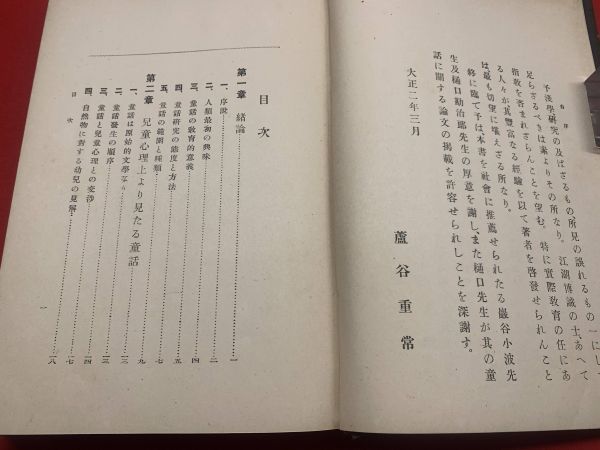 自序
予淺學研究の及ばざるもの、所見の誤れるもの一にして
足らざるべきは素よりその所なり。江湖博識の士、あへて
指教を吝まれざらんことを望む。特に實際教育の任にあ
る人々が其豐富なる經驗を以て著者を啓發せられんこと
は最も切望に堪えざる所なり。
終に臨て予は本書を社會に推薦せられたる巖谷小波先
生及樋口勘治郎先生の厚意を謝し、また樋口先生が其の童
話に關する論文の掲載を許容せられしことを深謝す。
大正二年三月
蘆谷重常
目次
第一章 緒論
一、序説 一
二、人類最初の興味 二
三、童話の教育的意義 四
四、童話研究の態度と方法 五
五、童話の範圍と種類 七
第二章 兒童心理上より見たる童話 九
一、童話は原始的文學なり 三
二、童話發生の順序 三
三、童話と兒童心理との交渉 四
四、自然物に對する幼兒の見解 七
八
目次
一